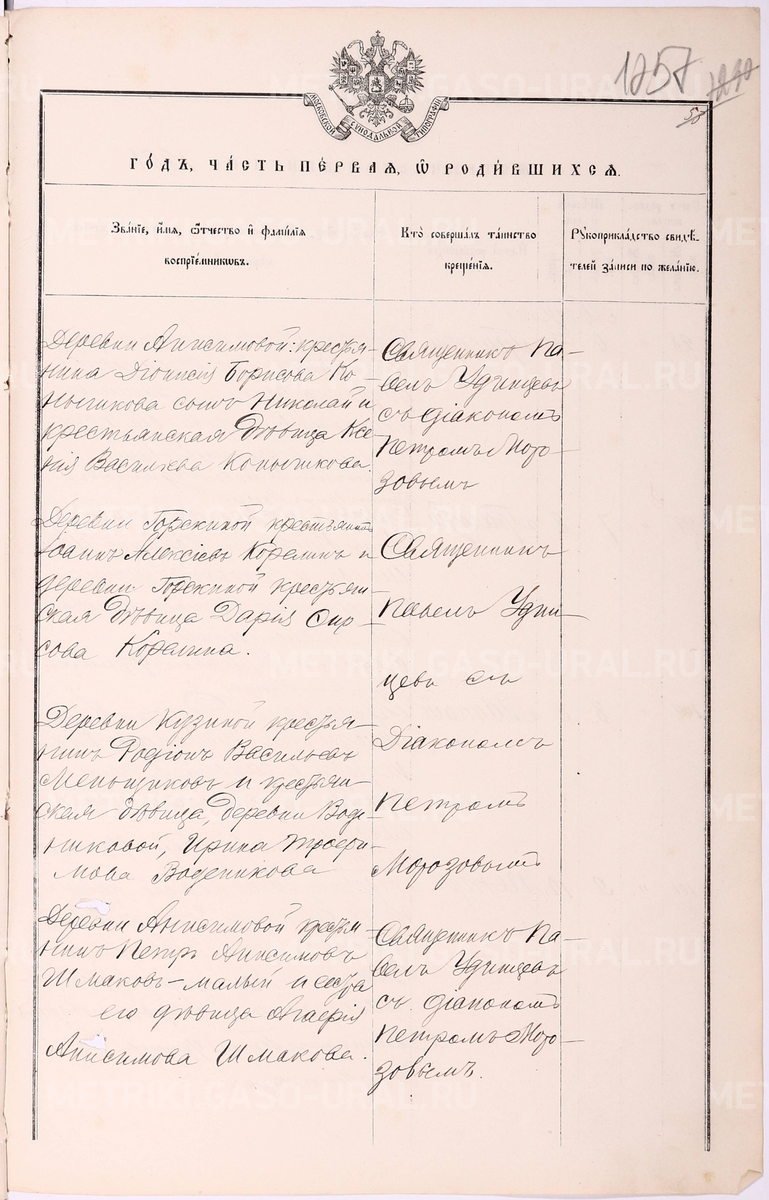 1257
МОСКОВСКОЙ СѴНОДАЛЬНОЙ ТИПОГРАФІИ
ГО́ДЪ, ЧА́СТЬ ПЕ́РВАЯ, Ѽ РОДИ́ВШИХСЯ.
Зва́нїе, и҆́мя, ѻ҆́тчество и҆ фами́лїя
воспрїе́мниковъ.
Кто̀ соверша́лъ та́инство
креще́нїя.
Рꙋкоприкла́дство свидѣ́-
телей за́писи по жела́нїю.
Деревни Анисимовой: крестья-
нина Діонисія Борисова Ко-
нычикова сынъ Николай и
крестьянская дѣвица Ксе-
нія Васильева Конычикова.
Священникъ Па-
велъ Удинцевъ
съ діакономъ
Петромъ Моро-
зовымъ
Деревни Горскиной крестьянинъ
Іоаннъ Алексіевъ Корелинъ и
деревни Горскиной крестьян-
ская дѣвица Дарія Сир-
сова Корелина.
Священникъ
Павелъ Удин-
цевъ съ
Діакономъ
Петромъ
Морозовымъ
Деревни Кузиной крестья-
нинъ Родіонъ Васильевъ
Меньщиковъ и крестьян-
ская дѣвица, деревни Воде-
никовой, Ирина Трофи-
мова Воденикова
Деревни Анисимовой крестья-
нинъ Петръ Анисимовъ
Шмаковъ-малый и сестра
его дѣвица Агаѳія
Анисимова Шмакова.
Священникъ Па-
велъ Удинцевъ
съ діакономъ
Петромъ Моро-
зовымъ.
METRIKI.GASO-URAL.RU